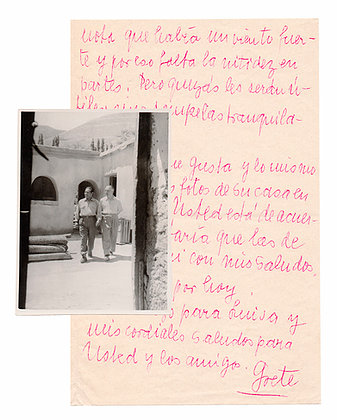 nota que había un viento fuer-
te y por eso falta la nitidez en
partes. Pero quizás les serán ú-
tranquila-
ue gusta y lo mismo
fotos de su casa en
Usted está de acuer-
aría que las de
i con mis saludos,
por hoy
s para Luisa y
mis cordiales saludos para
Usted y los amigos.
Grete